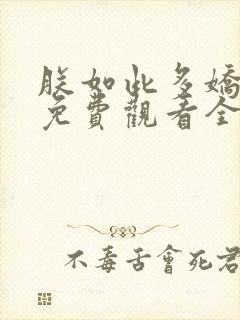 朕如此多嬌
免費觀看全
不毒舌會死君